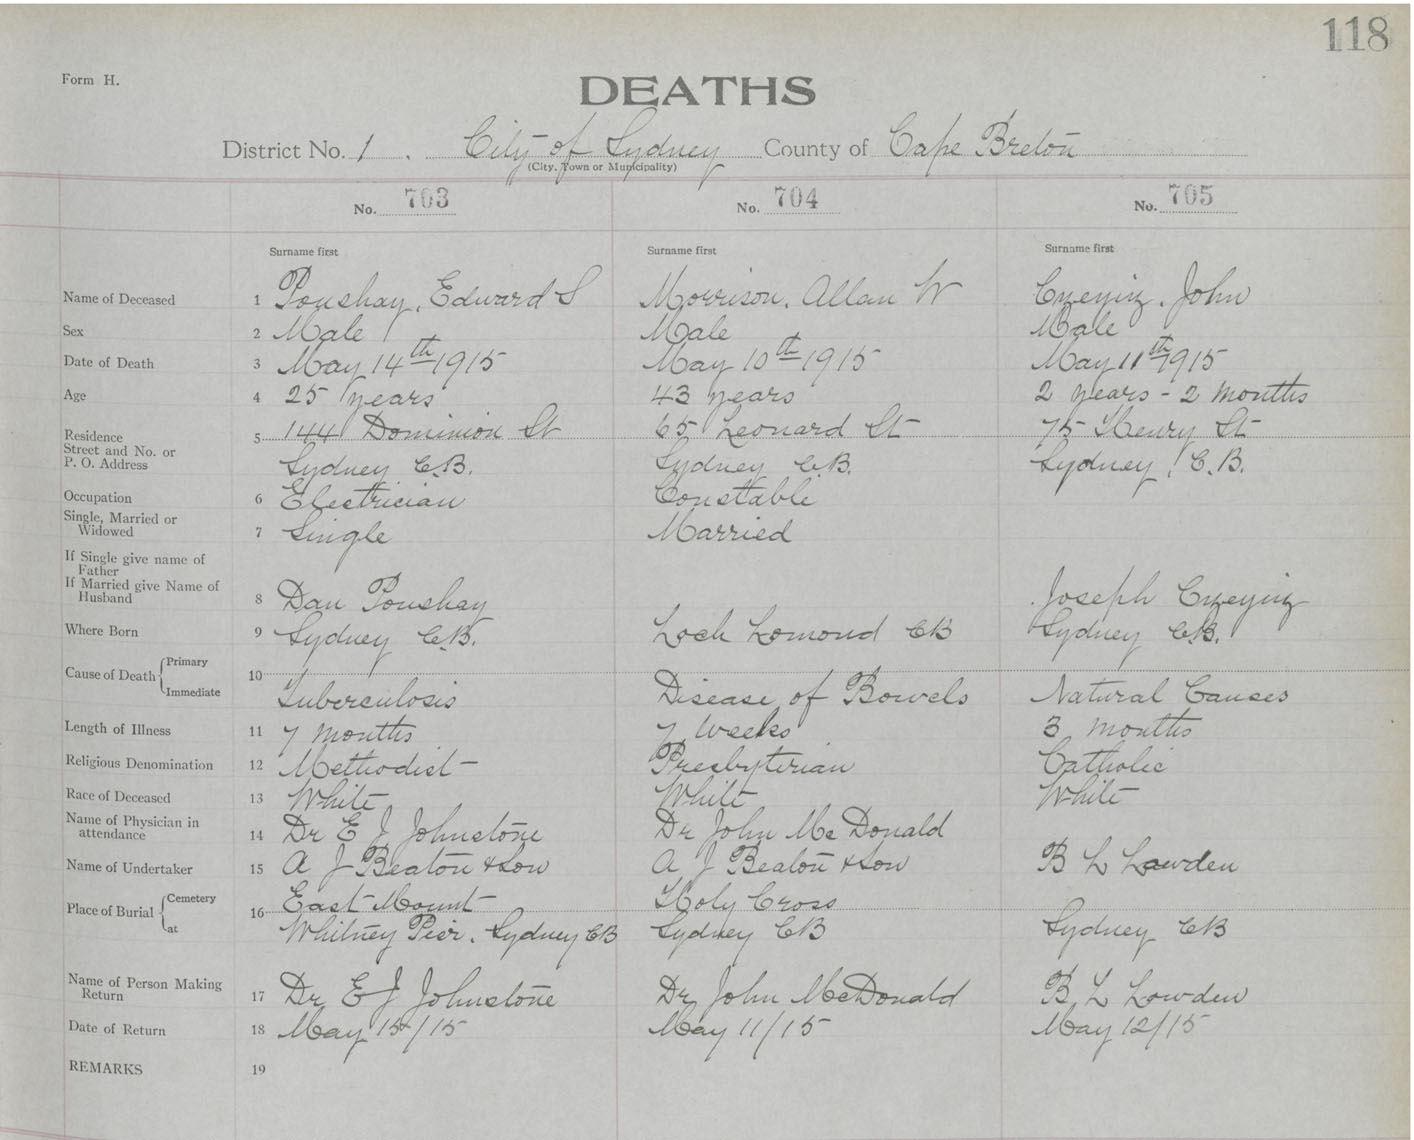 118
Form H.
DEATHS
District No. 1. City of Sydney County of Cape Breton
(City, Town or Municipality)
No. 703 No. 704 No. 705
Surname first Surname first Surname first
Name of Deceased 1 Poushay, Edward S Morrison, Allan W John
Sex 2 Male Male Male
Date of Death 3 May 14th 1915 May 10th 1915 May 11th 1915
Age 4 25 years 43 years 2 years - 2 months
Residence
Street and No. or
P. O. Address
5 144 Dominion St 65 Leonard St 75 Henry St
Sydney C.B. Sydney C.B. Sydney, C.B.
Occupation 6 Electrician Constable
Single, Married or
Widowed 7 Single Married
If Single give name of
Father
If Married give Name of
Husband 8 Dan Poushay Joseph
Where Born 9 Sydney C.B. Loch Lomond CB Sydney C.B.
Cause of Death Primary
Immediate 10 Tuberculosis Disease of Bowels Natural Causes
Length of Illness 11 7 months 7 weeks 3 months
Religious Denomination 12 Methodist Presbyterian Catholic
Race of Deceased 13 White White White
Name of Physician in
attendance 14 Dr E J Johnstone Dr John McDonald
Name of Undertaker 15 A J Beaton & Son A J Beaton & Son B L Lowden
Place of Burial Cemetery
at 16 East Mount Holy Cross
Whitney Pier, Sydney CB Sydney CB Sydney CB
Name of Person Making
Return 17 Dr E J Johnstone Dr John McDonald B L Lowden
Date of Return 18 May 15/15 May 11/15 May 12/15
REMARKS 19